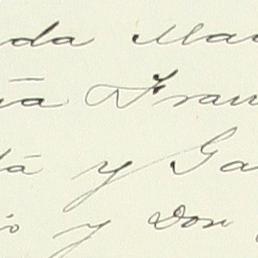 da Ma
ia Fran
tá y Ga
io y Don